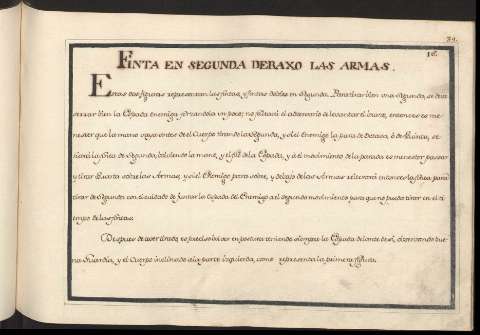 39.
16.
FINTA EN SEGUNDA DEBAXO LAS ARMAS.
Estas dos figuras representan las fintas, y fintas dobles en Segunda. Para tirar bien una Segunda, se deve
cerrar bien la Espada enemiga forzandola un poco; no faltará el adversario de levantar el brazo, entonces es me-
nester que la mano opuesta de el Cuerpo tiren de la Segunda, y si el Enemigo la para de Debaxo, ô de Quinta, se
la finta de Segunda, la mano, y el filo de la Espada, y a el movimiento de la parada es menester passar
y tirar Quarta sobre las Armas, y si el Enemigo para sobre, y debaxo de las Armas entonces la finta para
tirar de Segunda con el cuidado de juntar la Espada del Enemigo a el segundo movimiento para que no pueda tirar en el ti-
empo de las fintas.
Despues de aver tirado, es preciso bolver en postura teniendo siempre la Espada delante de si, observando bue-
na Guardia, y el Cuerpo inclinado a la parte izquierda, como representa la primera figura.